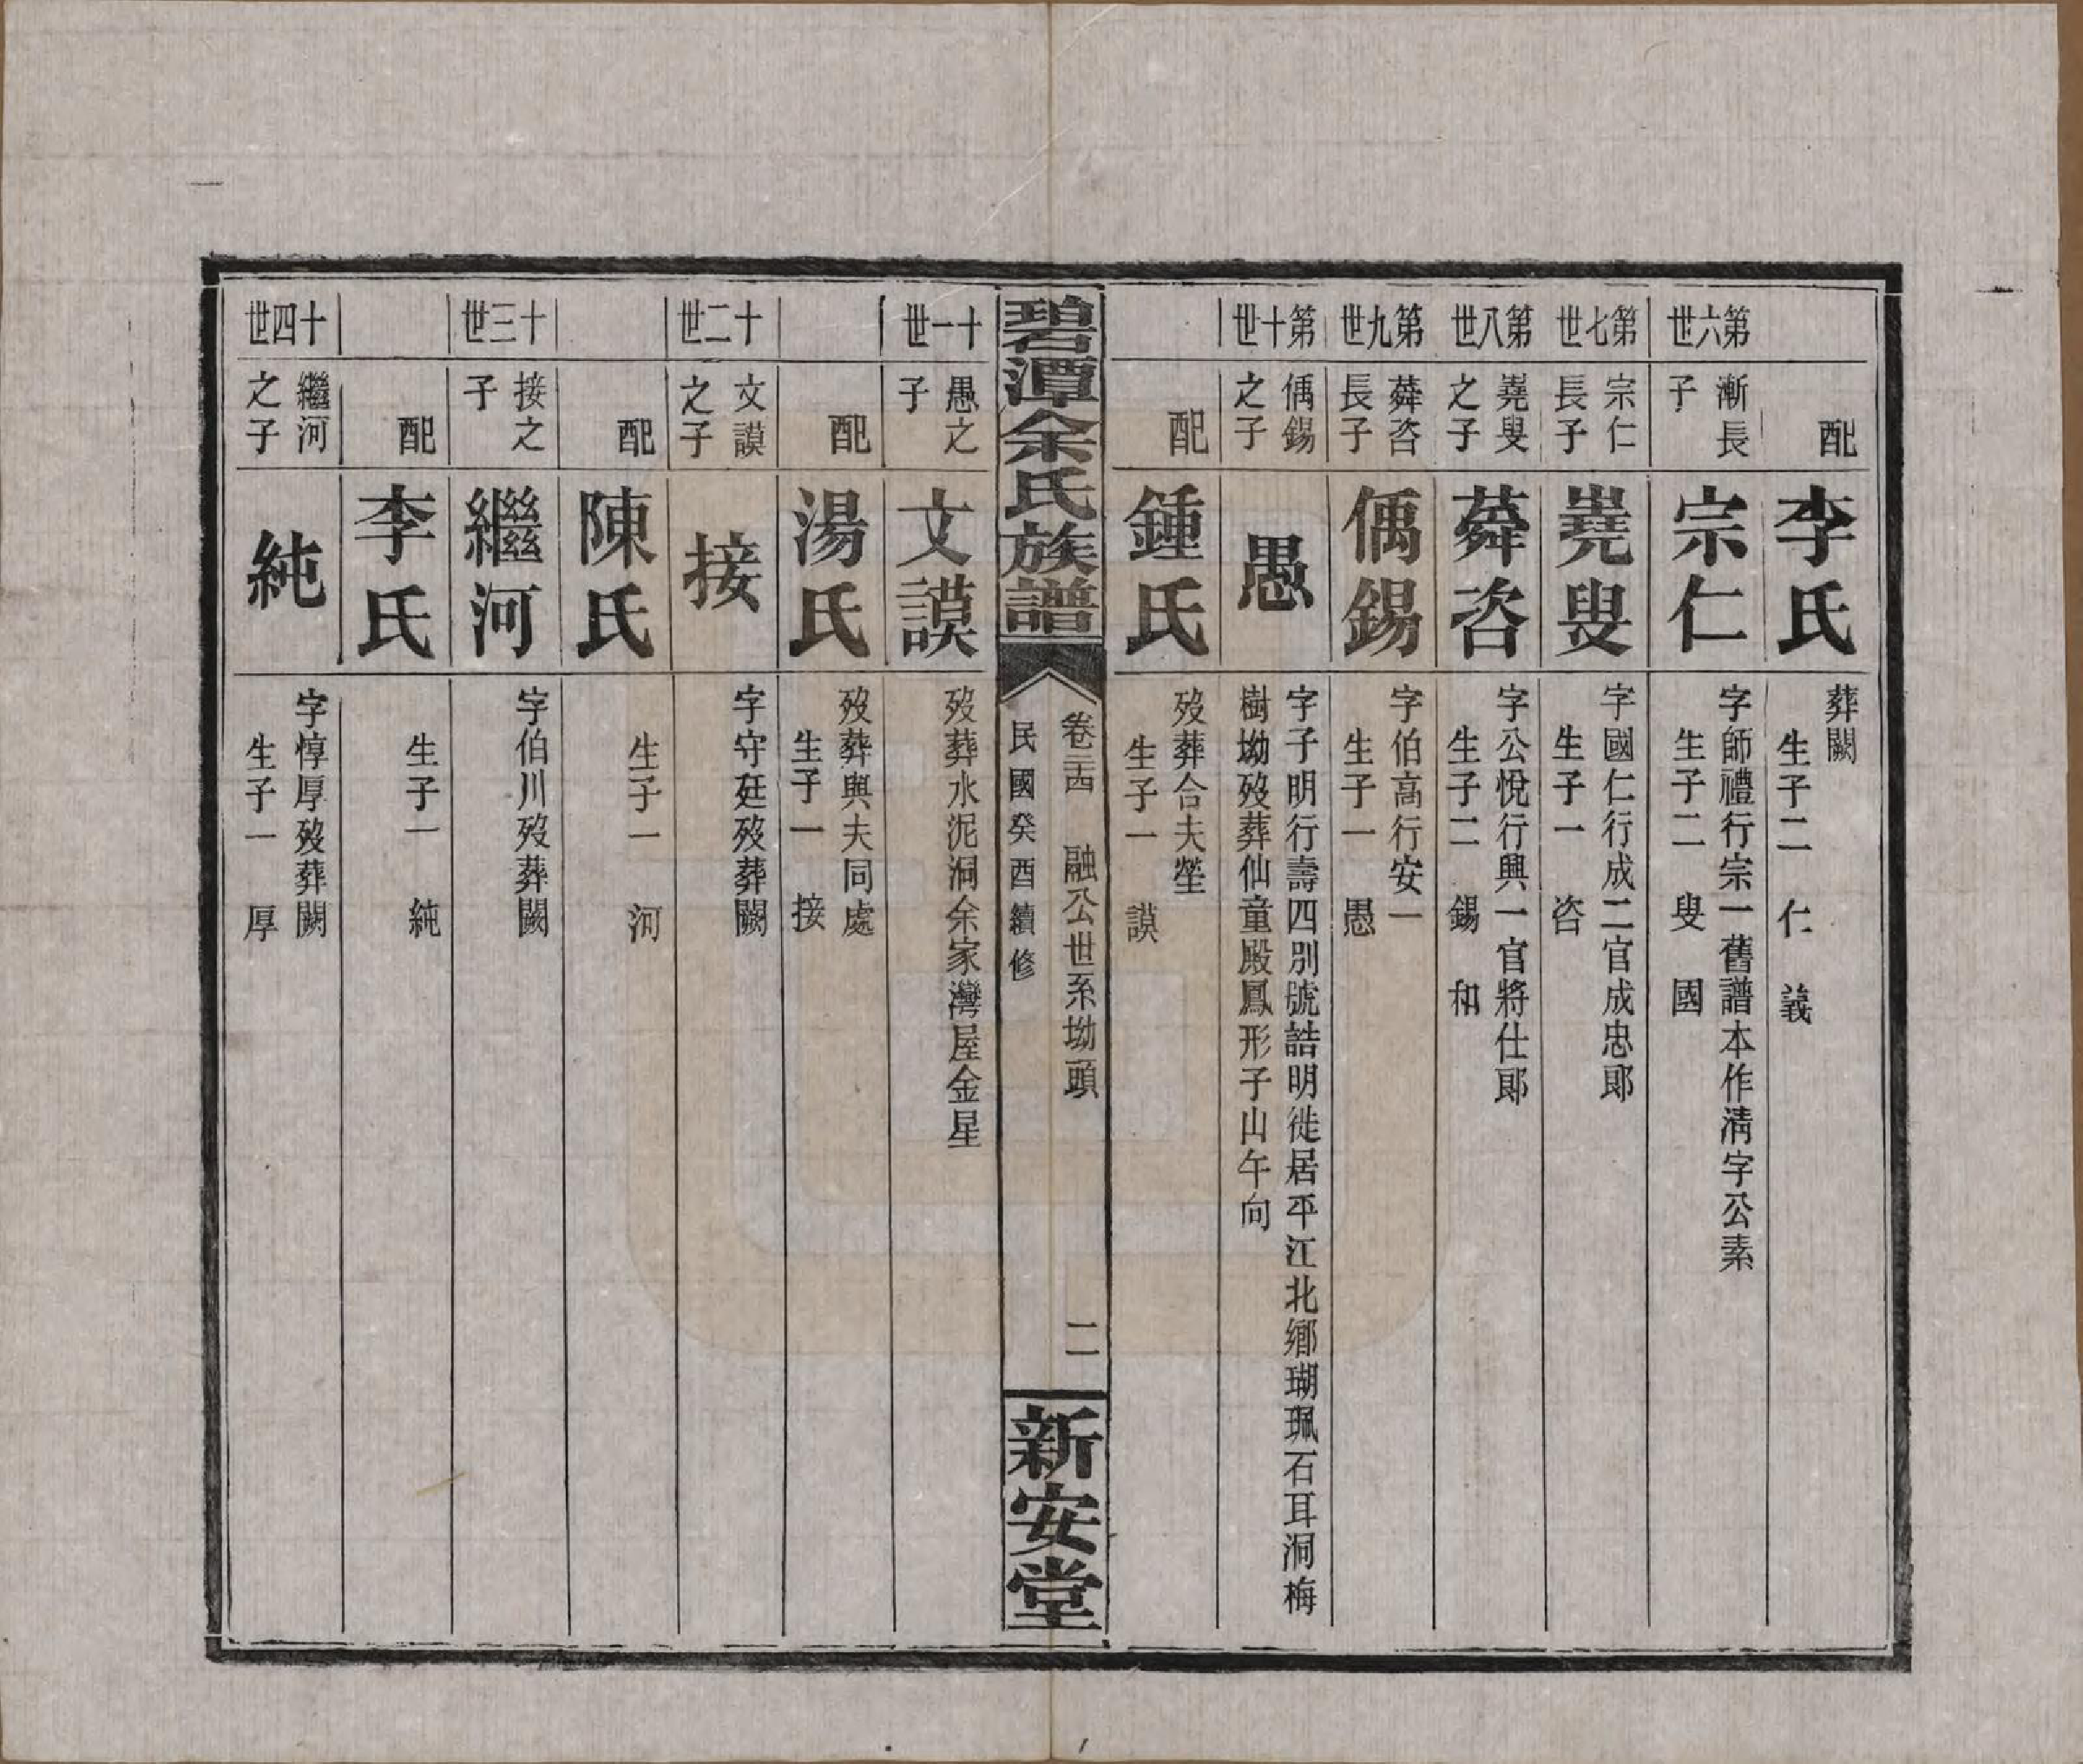 配
李氏
葬闕
生子二 仁 義
第六世
漸長
子
宗仁
字師禮行宗一舊譜本作清字公素
生子二 叟 國
第七世
宗仁
長子
嶤叟
字國仁行成二官成忠郎
生子一 咨
第八世
嶤叟
之子
蕣咨
字公悅行興一官將仕郎
生子二 錫 和
第九世
蕣咨
長子
偊錫
字伯高行安一
生子一 愚
第十世
偊錫
之子
愚
字子明行壽四別號誥明徙居平江北鄉瑚珮石耳洞梅
樹坳歿葬仙童殿鳳形子山午向
配
鍾氏
歿葬合夫塋
生子一 謨
碧潭余氏族譜
卷二十四 融公世系坳頭 二
民國癸酉續修
新安堂
十一世
愚之
子
文謨
歿葬水泥洞余家灣屋金星
配
湯氏
歿葬與夫同處
生子一 接
十二世
文謨
之子
接
字守廷歿葬闕
配
陳氏
生子一 河
十三世
接之
子
繼河
字伯川歿葬闕
配
李氏
生子一 純
十四世
繼河
之子
純
字惇厚歿葬闕
生子一 厚